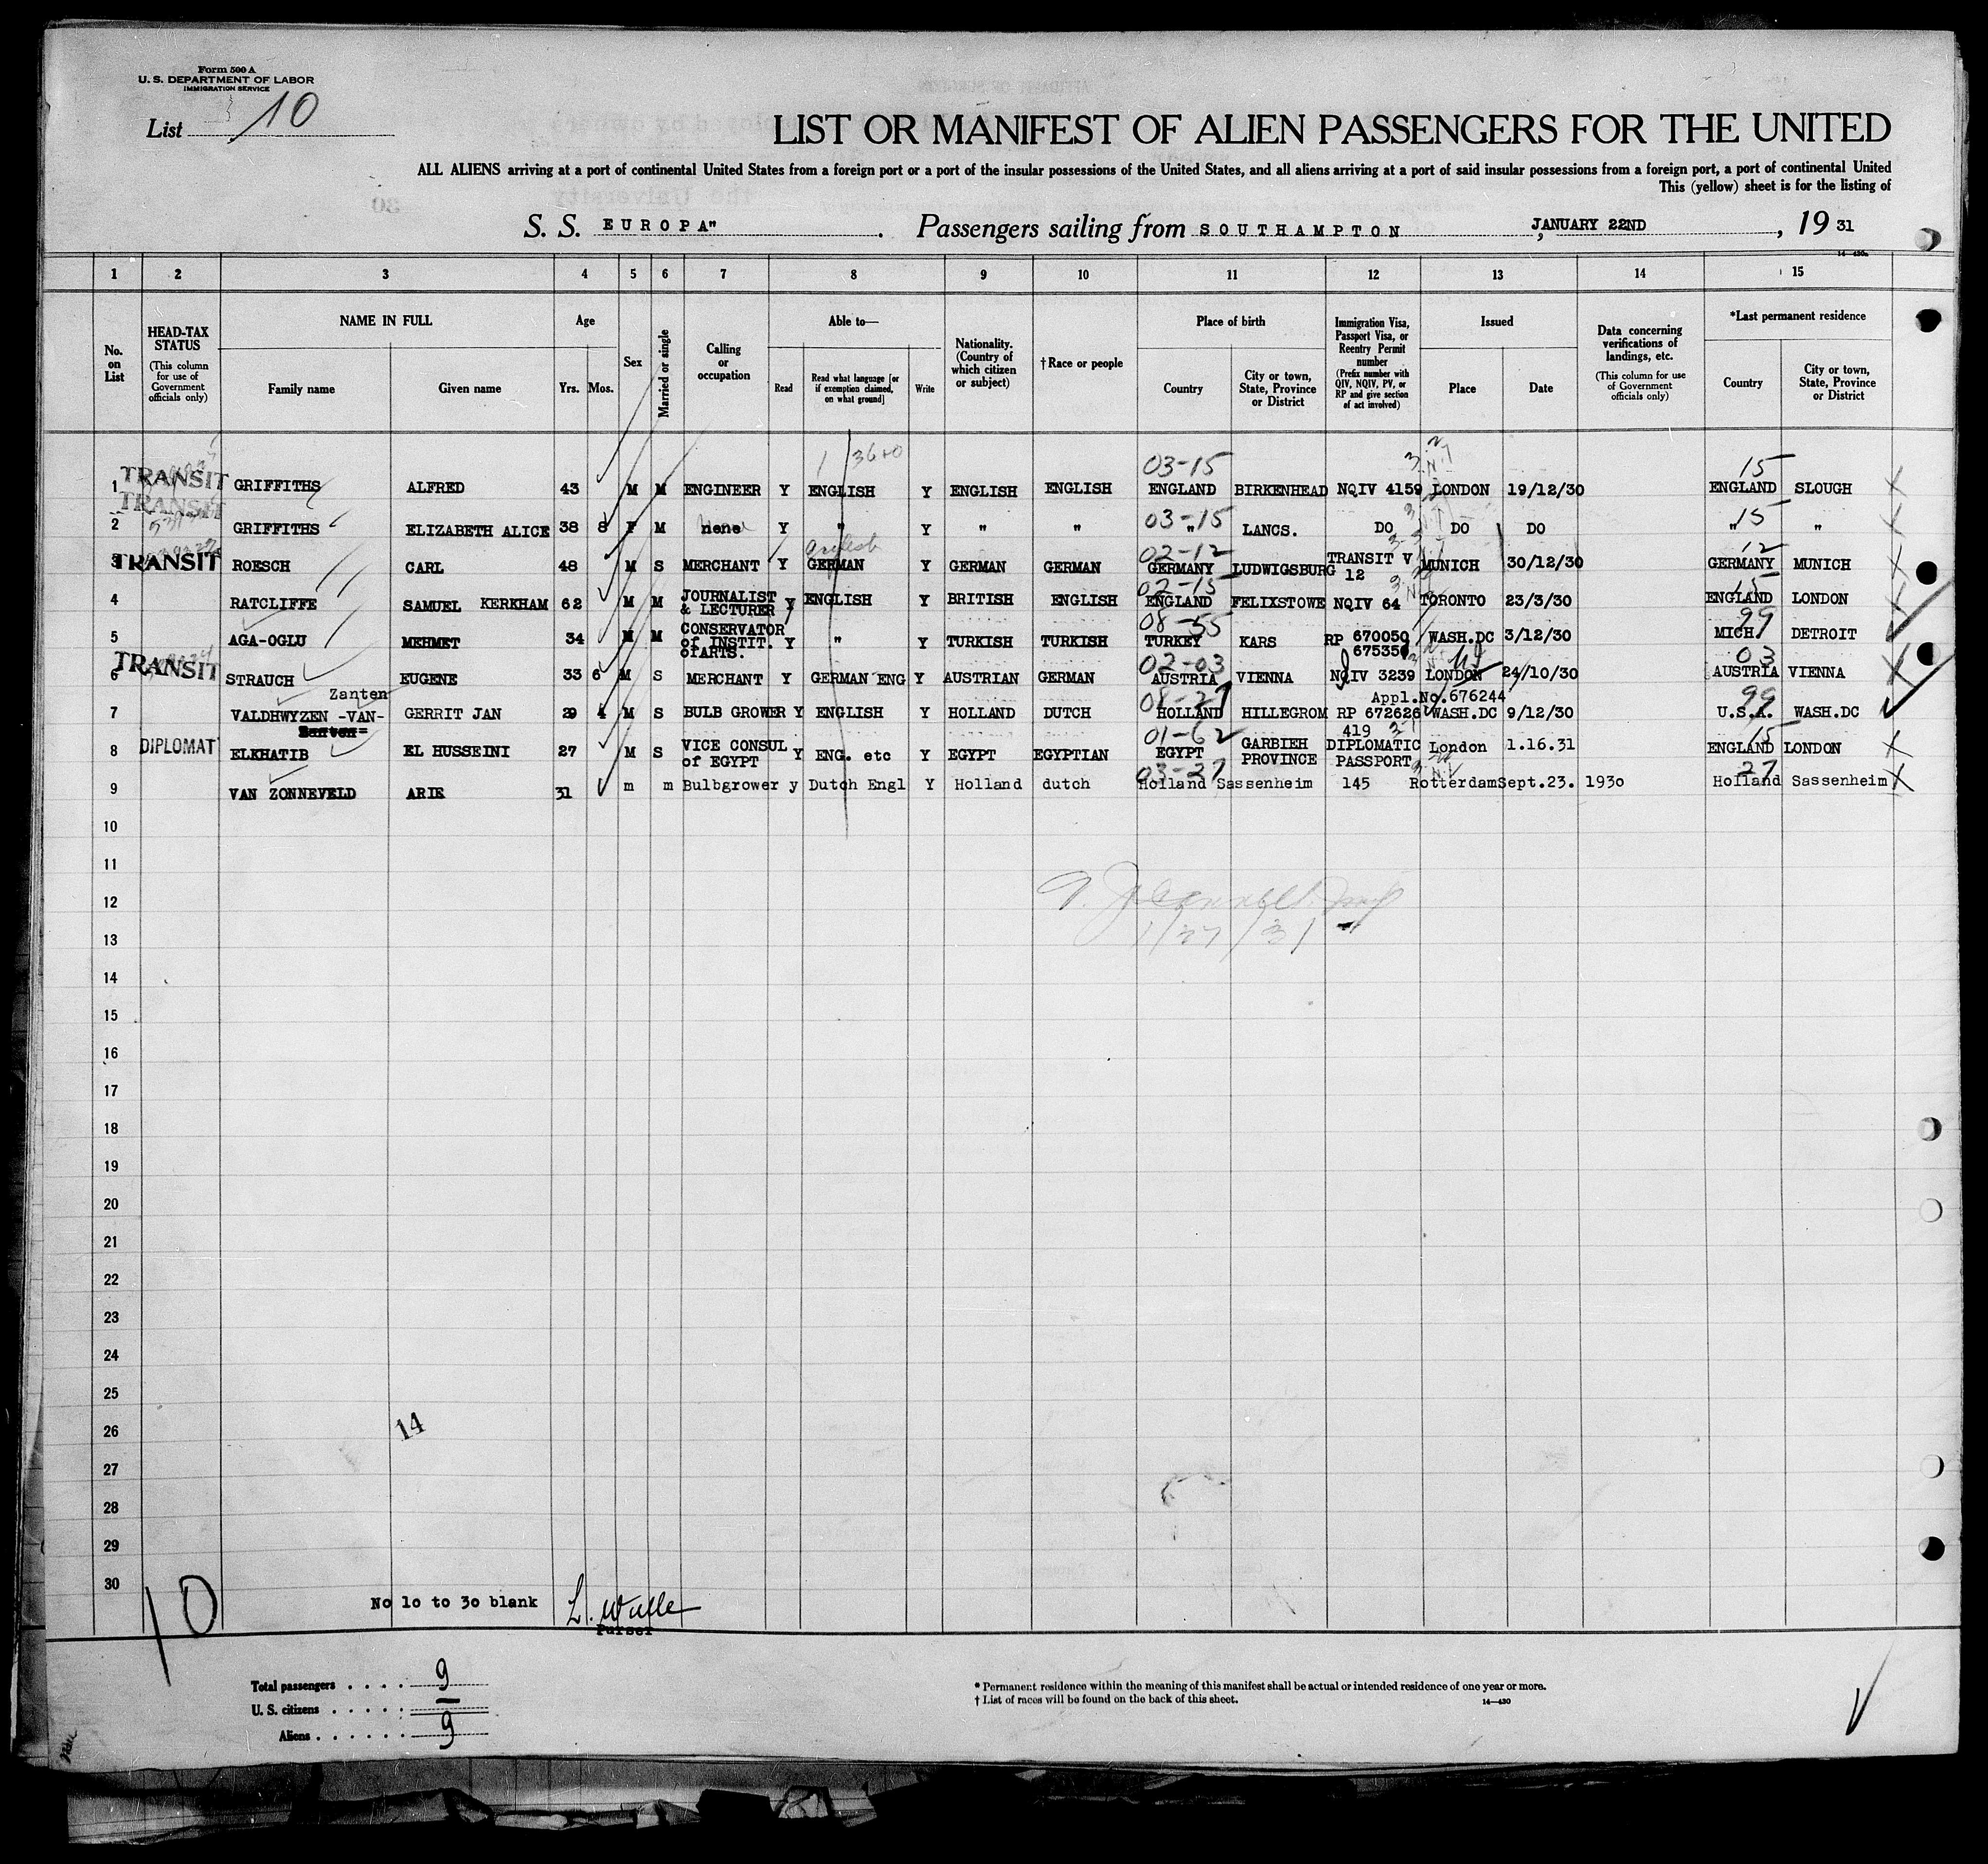 Form 500 A
U. S. DEPARTMENT OF LABOR
IMMIGRATION SERVICE
List 10
LIST OR MANIFEST OF ALIEN PASSENGERS FOR THE UNITED
ALL ALIENS arriving at a port of continental United States from a foreign port or a port of the insular possessions of the United States, and all aliens arriving at a port of said insular possessions from a foreign port, a port of continental United
This (yellow) sheet is for the listing of
S. S. EUROPA" . Passengers sailing from SOUTHAMPTON , JANUARY 22ND , 19 31
14—430a
1 2 3 4 5 6 7 8 9 10 11 12 13 14 15
No. on List
HEAD-TAX STATUS (This column for use of Government officials only)
NAME IN FULL Family name Given name
Age Yrs. Mos.
Sex
Married or single
Calling or occupation
Able to— Read Read what language [or if exemption claimed, on what ground] Write
Nationality. (Country of which citizen or subject)
†Race or people
Place of birth Country City or town, State, Province or District
Immigration Visa, Passport Visa, or Reentry Permit number (Prefix number with QIV, NQIV, PV, or RP and give section of act involved)
Issued Place Date
Data concerning verifications of landings, etc. (This column for use of Government officials only)
*Last permanent residence Country City or town, State, Province or District
03-15 15
1 TRANSIT GRIFFITHS ALFRED 43 M M ENGINEER Y ENGLISH Y ENGLISH ENGLISH ENGLAND BIRKENHEAD NQIV 4159 LONDON 19/12/30 ENGLAND SLOUGH
TRANSIT
03-15 15
2 GRIFFITHS ELIZABETH ALICE 38 8 F M none Y " Y " " " LANCS. DO DO DO " "
English 02-12 12
3 TRANSIT ROESCH CARL 48 M S MERCHANT Y GERMAN Y GERMAN GERMAN GERMANY LUDWIGSBURG TRANSIT V 12 MUNICH 30/12/30 GERMANY MUNICH
02-15 15
4 RATCLIFFE SAMUEL KERKHAM 62 M M JOURNALIST & LECTURER Y ENGLISH Y BRITISH ENGLISH ENGLAND FELIXSTOWE NQIV 64 TORONTO 23/3/30 ENGLAND LONDON
08-55 99
5 AGA-OGLU MEHMET 34 M M CONSERVATOR of INSTIT. ofARTS. Y " Y TURKISH TURKISH TURKEY KARS RP 670050 675350 WASH.DC 3/12/30 MICH DETROIT
02-03 03
6 TRANSIT STRAUCH EUGENE 33 6 M S MERCHANT Y GERMAN ENG Y AUSTRIAN GERMAN AUSTRIA VIENNA NQIV 3239 LONDON 24/10/30 AUSTRIA VIENNA
Zanten 08-27 Appl.No.676244 99
7 VALDHWYZEN -VAN- GERRIT JAN 29 4 M S BULB GROWER Y ENGLISH Y HOLLAND DUTCH HOLLAND HILLEGROM RP 672626 WASH.DC 9/12/30 U.S.A. WASH.DC
01-62 15
8 DIPLOMAT ELKHATIB EL HUSSEINI 27 M S VICE CONSUL of EGYPT Y ENG. etc Y EGYPT EGYPTIAN EGYPT GARBIEH PROVINCE 419 DIPLOMATIC PASSPORT London 1.16.31 ENGLAND LONDON
03-27 27
9 VAN ZONNEVELD ARIE 31 m m Bulbgrower y Dutch Engl Y Holland dutch Holland Sassenheim 145 Rotterdam Sept.23. 1930 Holland Sassenheim
10
11
12
13 1/27/31
14
15
16
17
18
19
20
21
22
23
24
25
26 14
27
28
29
30
10
No 10 to 30 blank L. Wulle
Purser
Total passengers . . . . 9
U. S. citizens . . . . . —
Aliens . . . . . . 9
* Permanent residence within the meaning of this manifest shall be actual or intended residence of one year or more.
† List of races will be found on the back of this sheet. 14—430